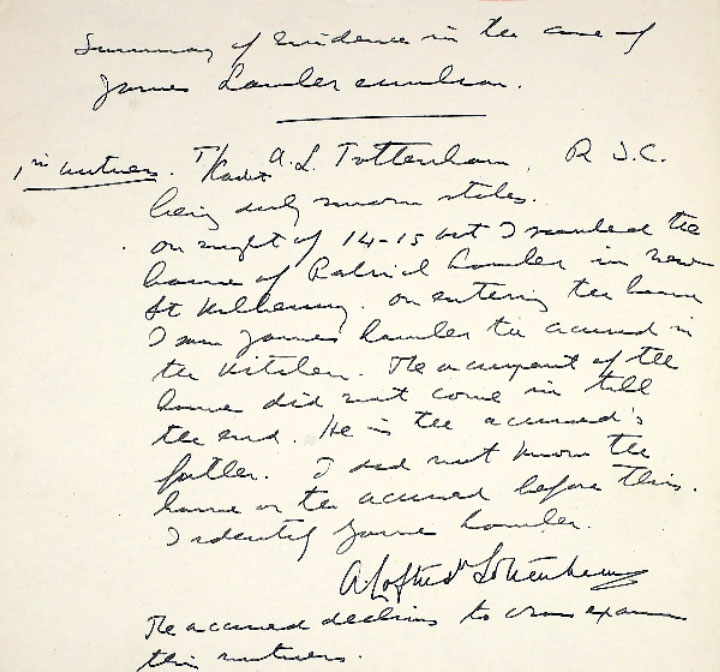 Summary of Evidence in the case of
James Lawler civilian.
1st witness. T/Cadet A. L. Tottenham, R I C.
being duly sworn states.
on night of 14-15 oct I searched the
house of Patrick Lawler in New
St Kilkenny. on entering the house
I saw James Lawler the accused in
the kitchen. The occupant of the
house did not come in till
the end. He is the accused's
father. I did not know the
house or the accused before this.
I identify James Lawler.
A Loftus Tottenham
The accused declines to cross examine
this witness.